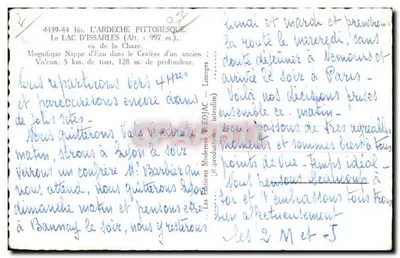 4439-44 bis. L'ARDECHE PITTORESQUE
Le LAC D'ISSARLES (Alt. : 997 m.),
vu de la Chaze.
Magnifique Nappe d'Eau dans le Cratère d'un ancien
Volcan. 5 km. de tour, 128 m. de profondeur.
Nous repartirons vers
et parcourons encore dans
de jolis sites.
Nous quitterons Vals Vendredi
matin, serons à Lyon le soir
verrons un confrère Mr
nous attend, nous quitterons Lyon
dimanche matin et pensons être
à Bannay le soir, nous y restons
Les Editions Modernes THEOJAC - Limoges
(Reproduction interdite)
lundi et mardi et prendrons
la route le mercredi, sans
doute déjeuner à Nemours et
arrivée le soir à Paris.
Voilà nos décisions prises
ensemble ce matin.
Nous passons de très agréables
moments et sommes servis tous
points de vue. Temps idéal
Nous pensons beaucoup à
toi et t'embrassons tous trois
bien affectueusement
les 2 M et J